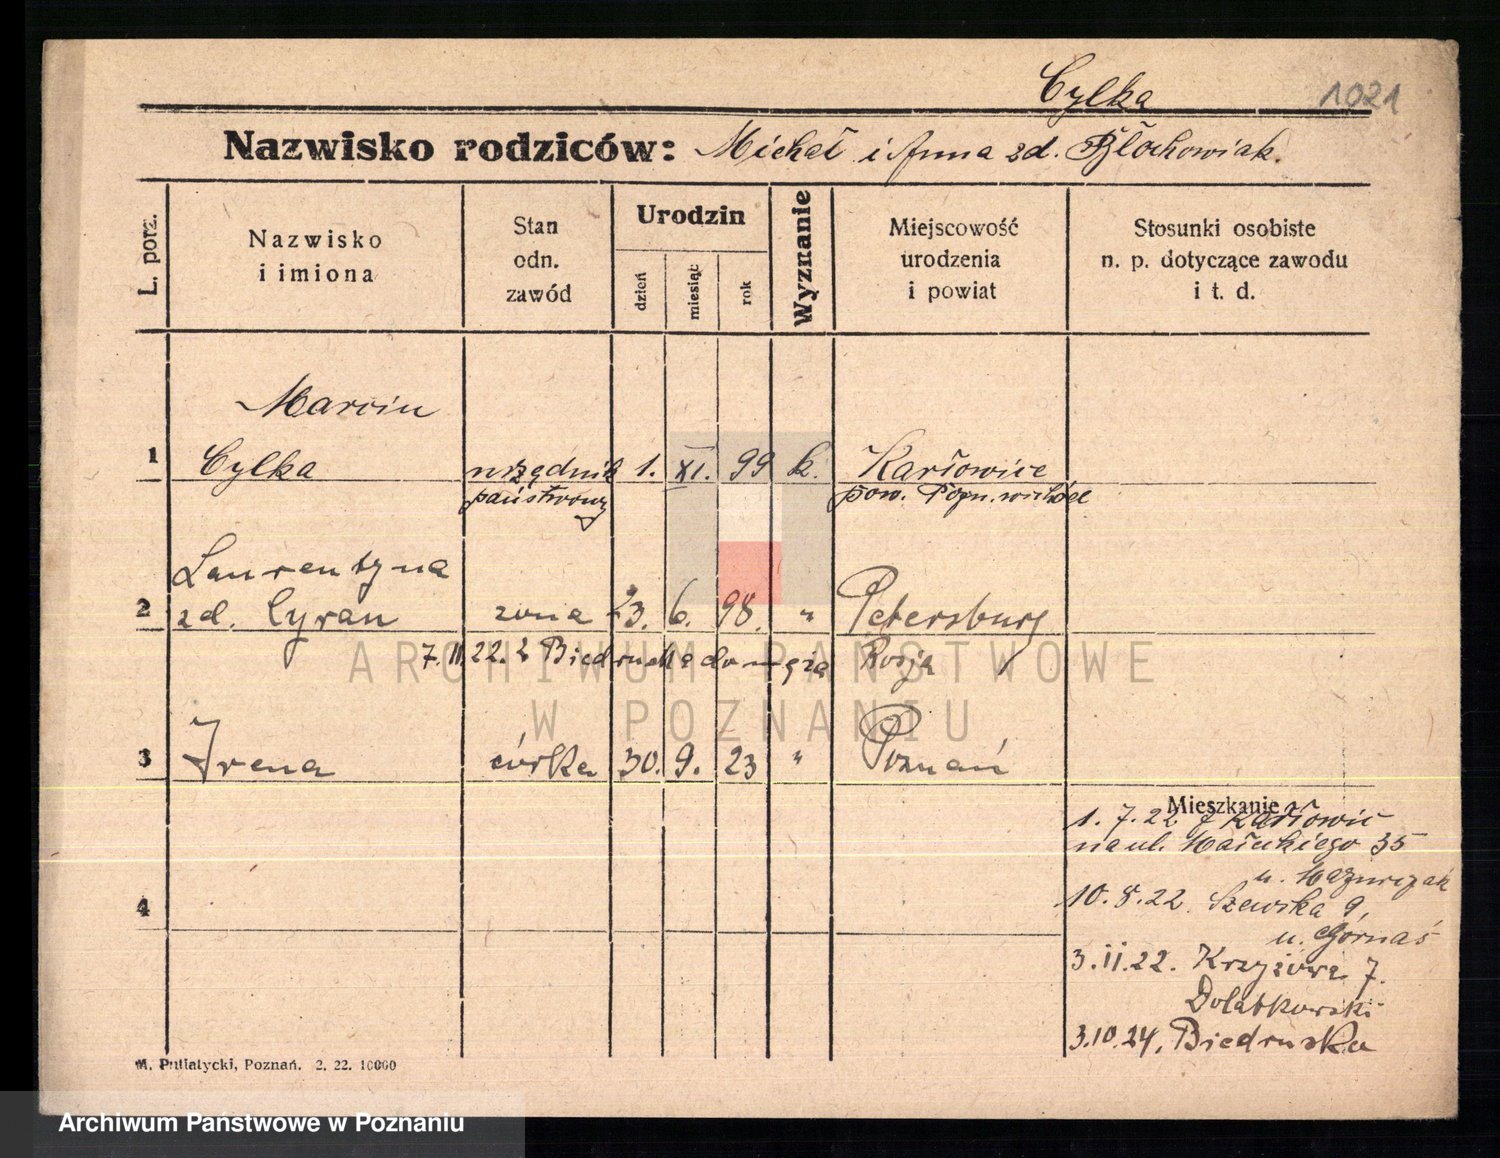 Cylka
1021
Nazwisko rodziców: Michał i Anna zd. Błochowiak.
L. porz.
Nazwisko
i imiona
Stan
odn.
zawód
Urodzin
dzień
miesiąc
rok
Wyznanie
Miejscowość
urodzenia
i powiat
Stosunki osobiste
n. p. dotyczące zawodu
i t. d.
Marcin
1 Cylka urzędnik 1. XI. 99 k. Karłowice
państwowy pow. Pozn.
Laurentyna
2 zd. Cyran żona 23. 6. 98. " Petersburg
7.11.22. z Biedruska do męża Rosja
3 Irena córka 30. 9. 23 " Poznań
Mieszkanie
1. 7. 22 z Karłowic
na ul. Małeckiego 35
u. Mazurczak
4
10. 8. 22. Szewska 9,
u. Górnaś
3. 11. 22. Krzyżowa 7.
3.10.24. Biedruska
M. Putiatycki, Poznań. 2. 22. 10000
ARCHIWUM PAŃSTWOWE
W POZNANIU
Archiwum Państwowe w Poznaniu